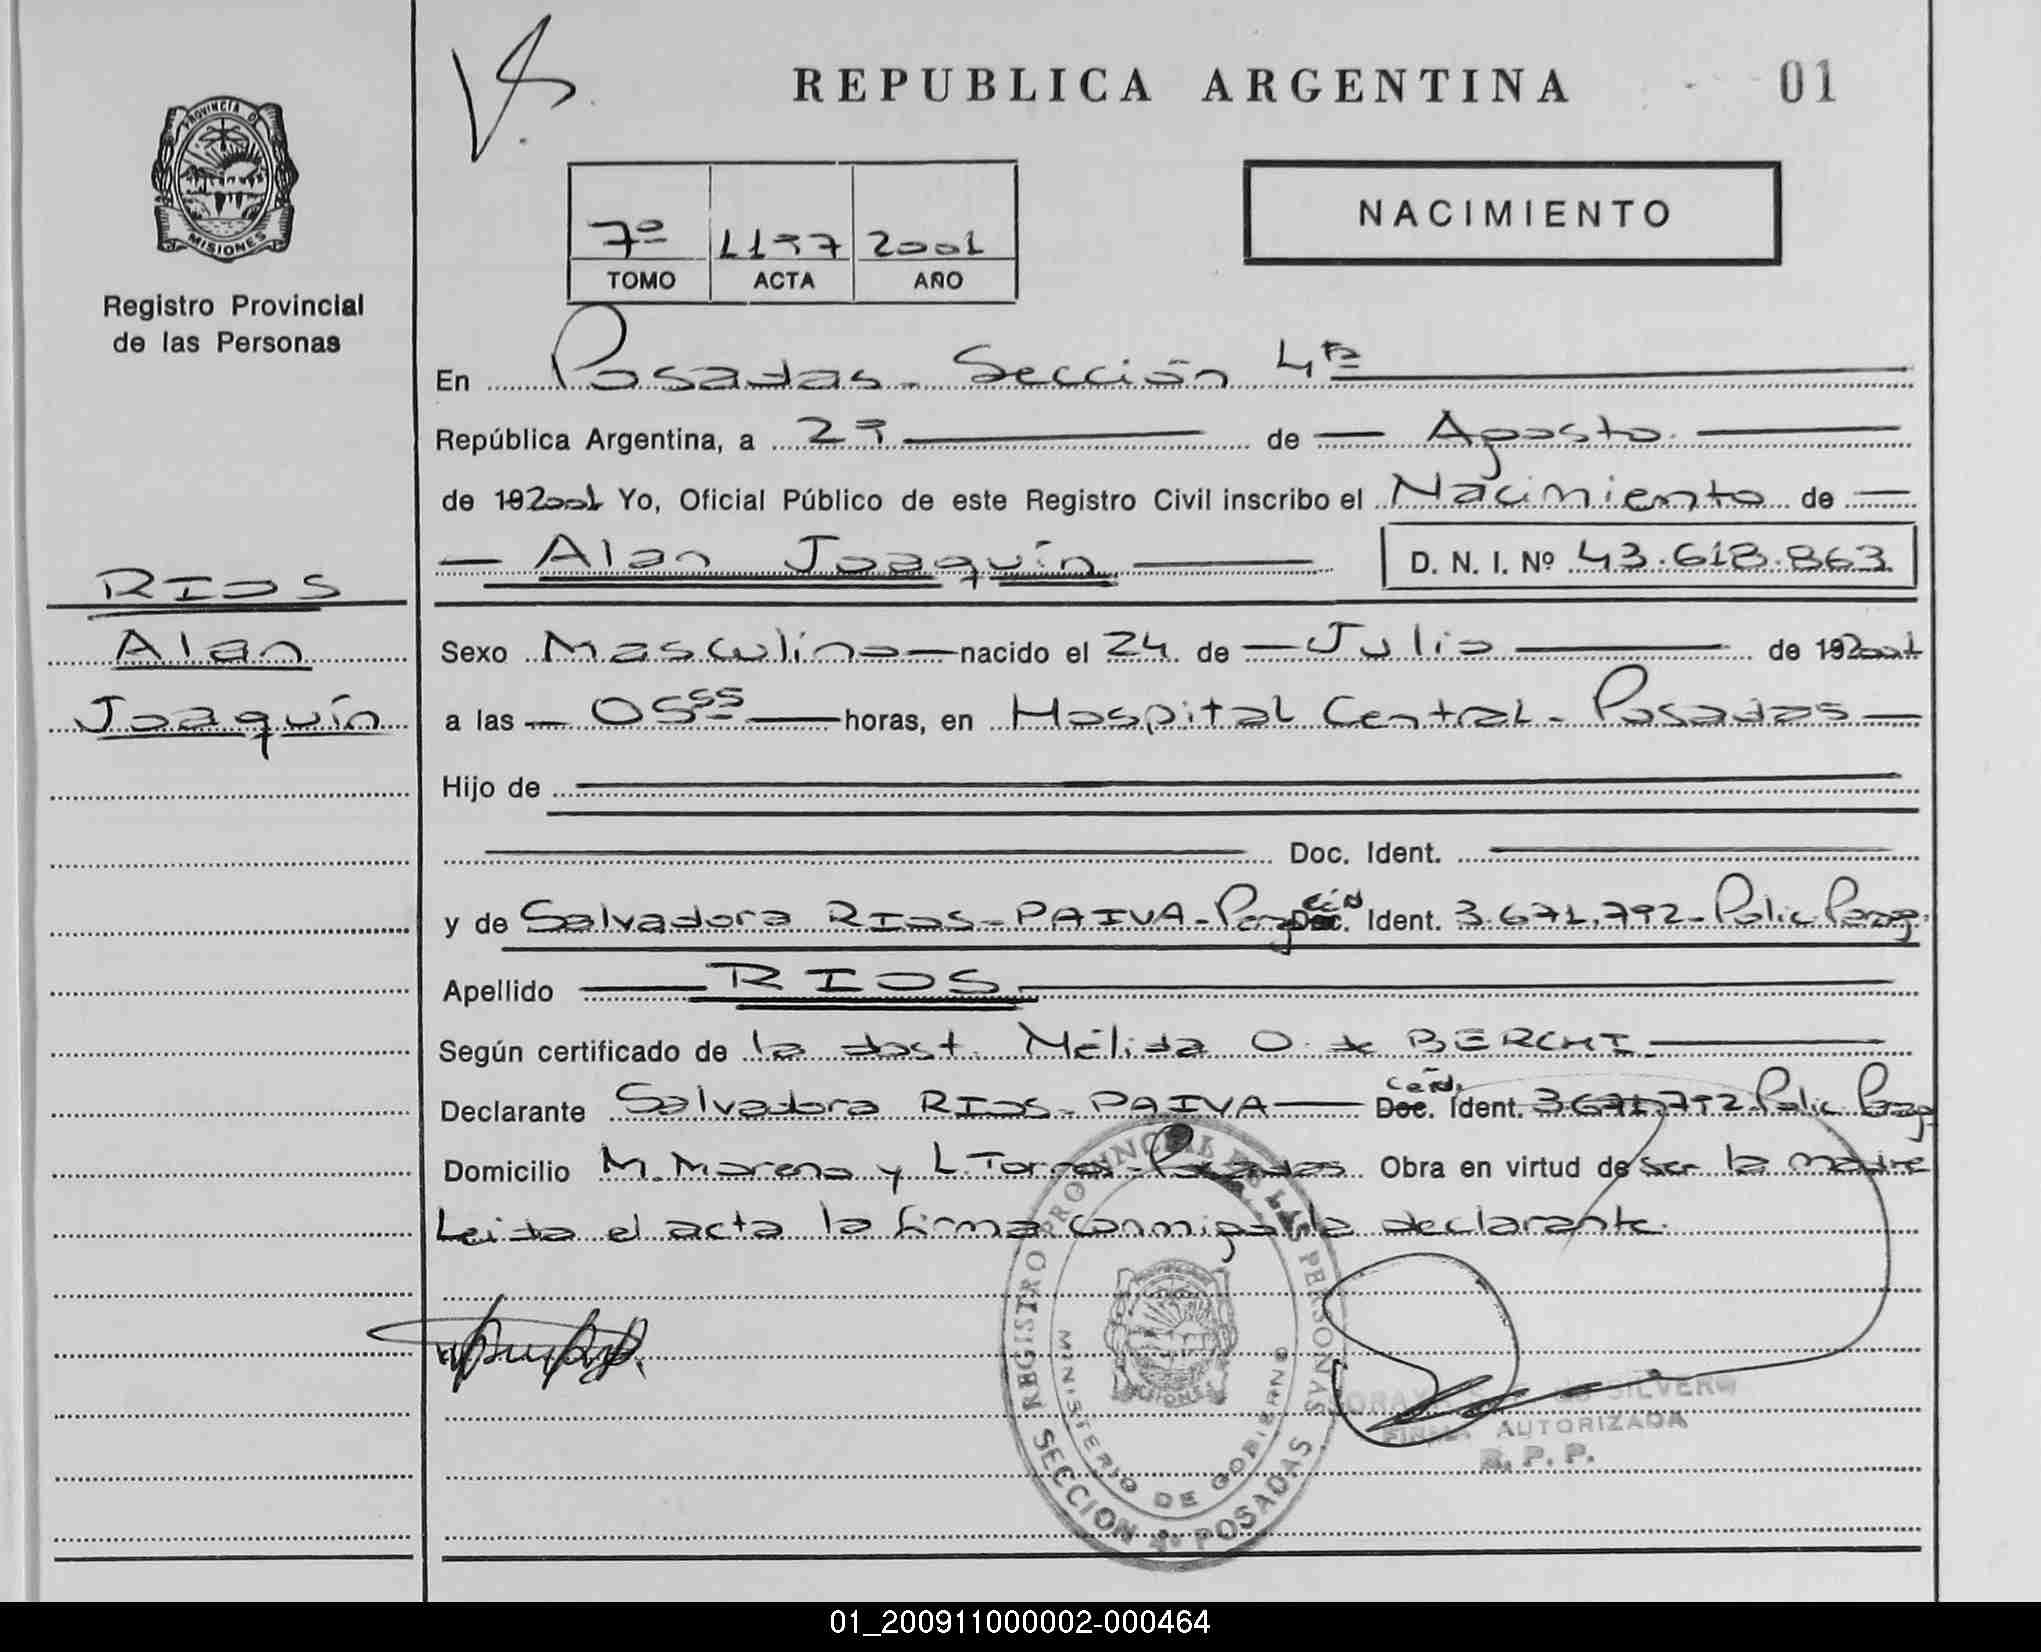 REPUBLICA ARGENTINA 01
PROVINCIA DE
MISIONES
Registro Provincial
de las Personas
NACIMIENTO
7º 1197 2001
TOMO ACTA AÑO
En Posadas - Sección 4ª
República Argentina, a 29 de Agosto
de 192001 Yo, Oficial Público de este Registro Civil inscribo el Nacimiento de
Alan Joaquín D. N. I. Nº 43.618.863
RIOS
Alan
Joaquín
Sexo Masculino nacido el 24 de Julio de 192001
a las 05 55 horas, en Hospital Central - Posadas
Hijo de
Doc. Ident.
y de Salvadora RIOS - PAIVA - Parag Céd Doc. Ident. 3.671.792 - Polic. Parag.
Apellido RIOS
Según certificado de la dost. Mélida O. de BERCHI
Declarante Salvadora RIOS - PAIVA Céd. Doc. Ident. 3.671.792 - Polic. Parag
Domicilio M. Moreno y L. Torres - Posadas Obra en virtud de ser la madre
Leida el acta la firma conmigo la declarante.
REGISTRO PROVINCIAL DE LAS PERSONAS
MINISTERIO DE GOBIERNO
MISIONES
SECCION 4º POSADAS
SILVERO
FIRMA AUTORIZADA
R. P. P.
01_200911000002-000464